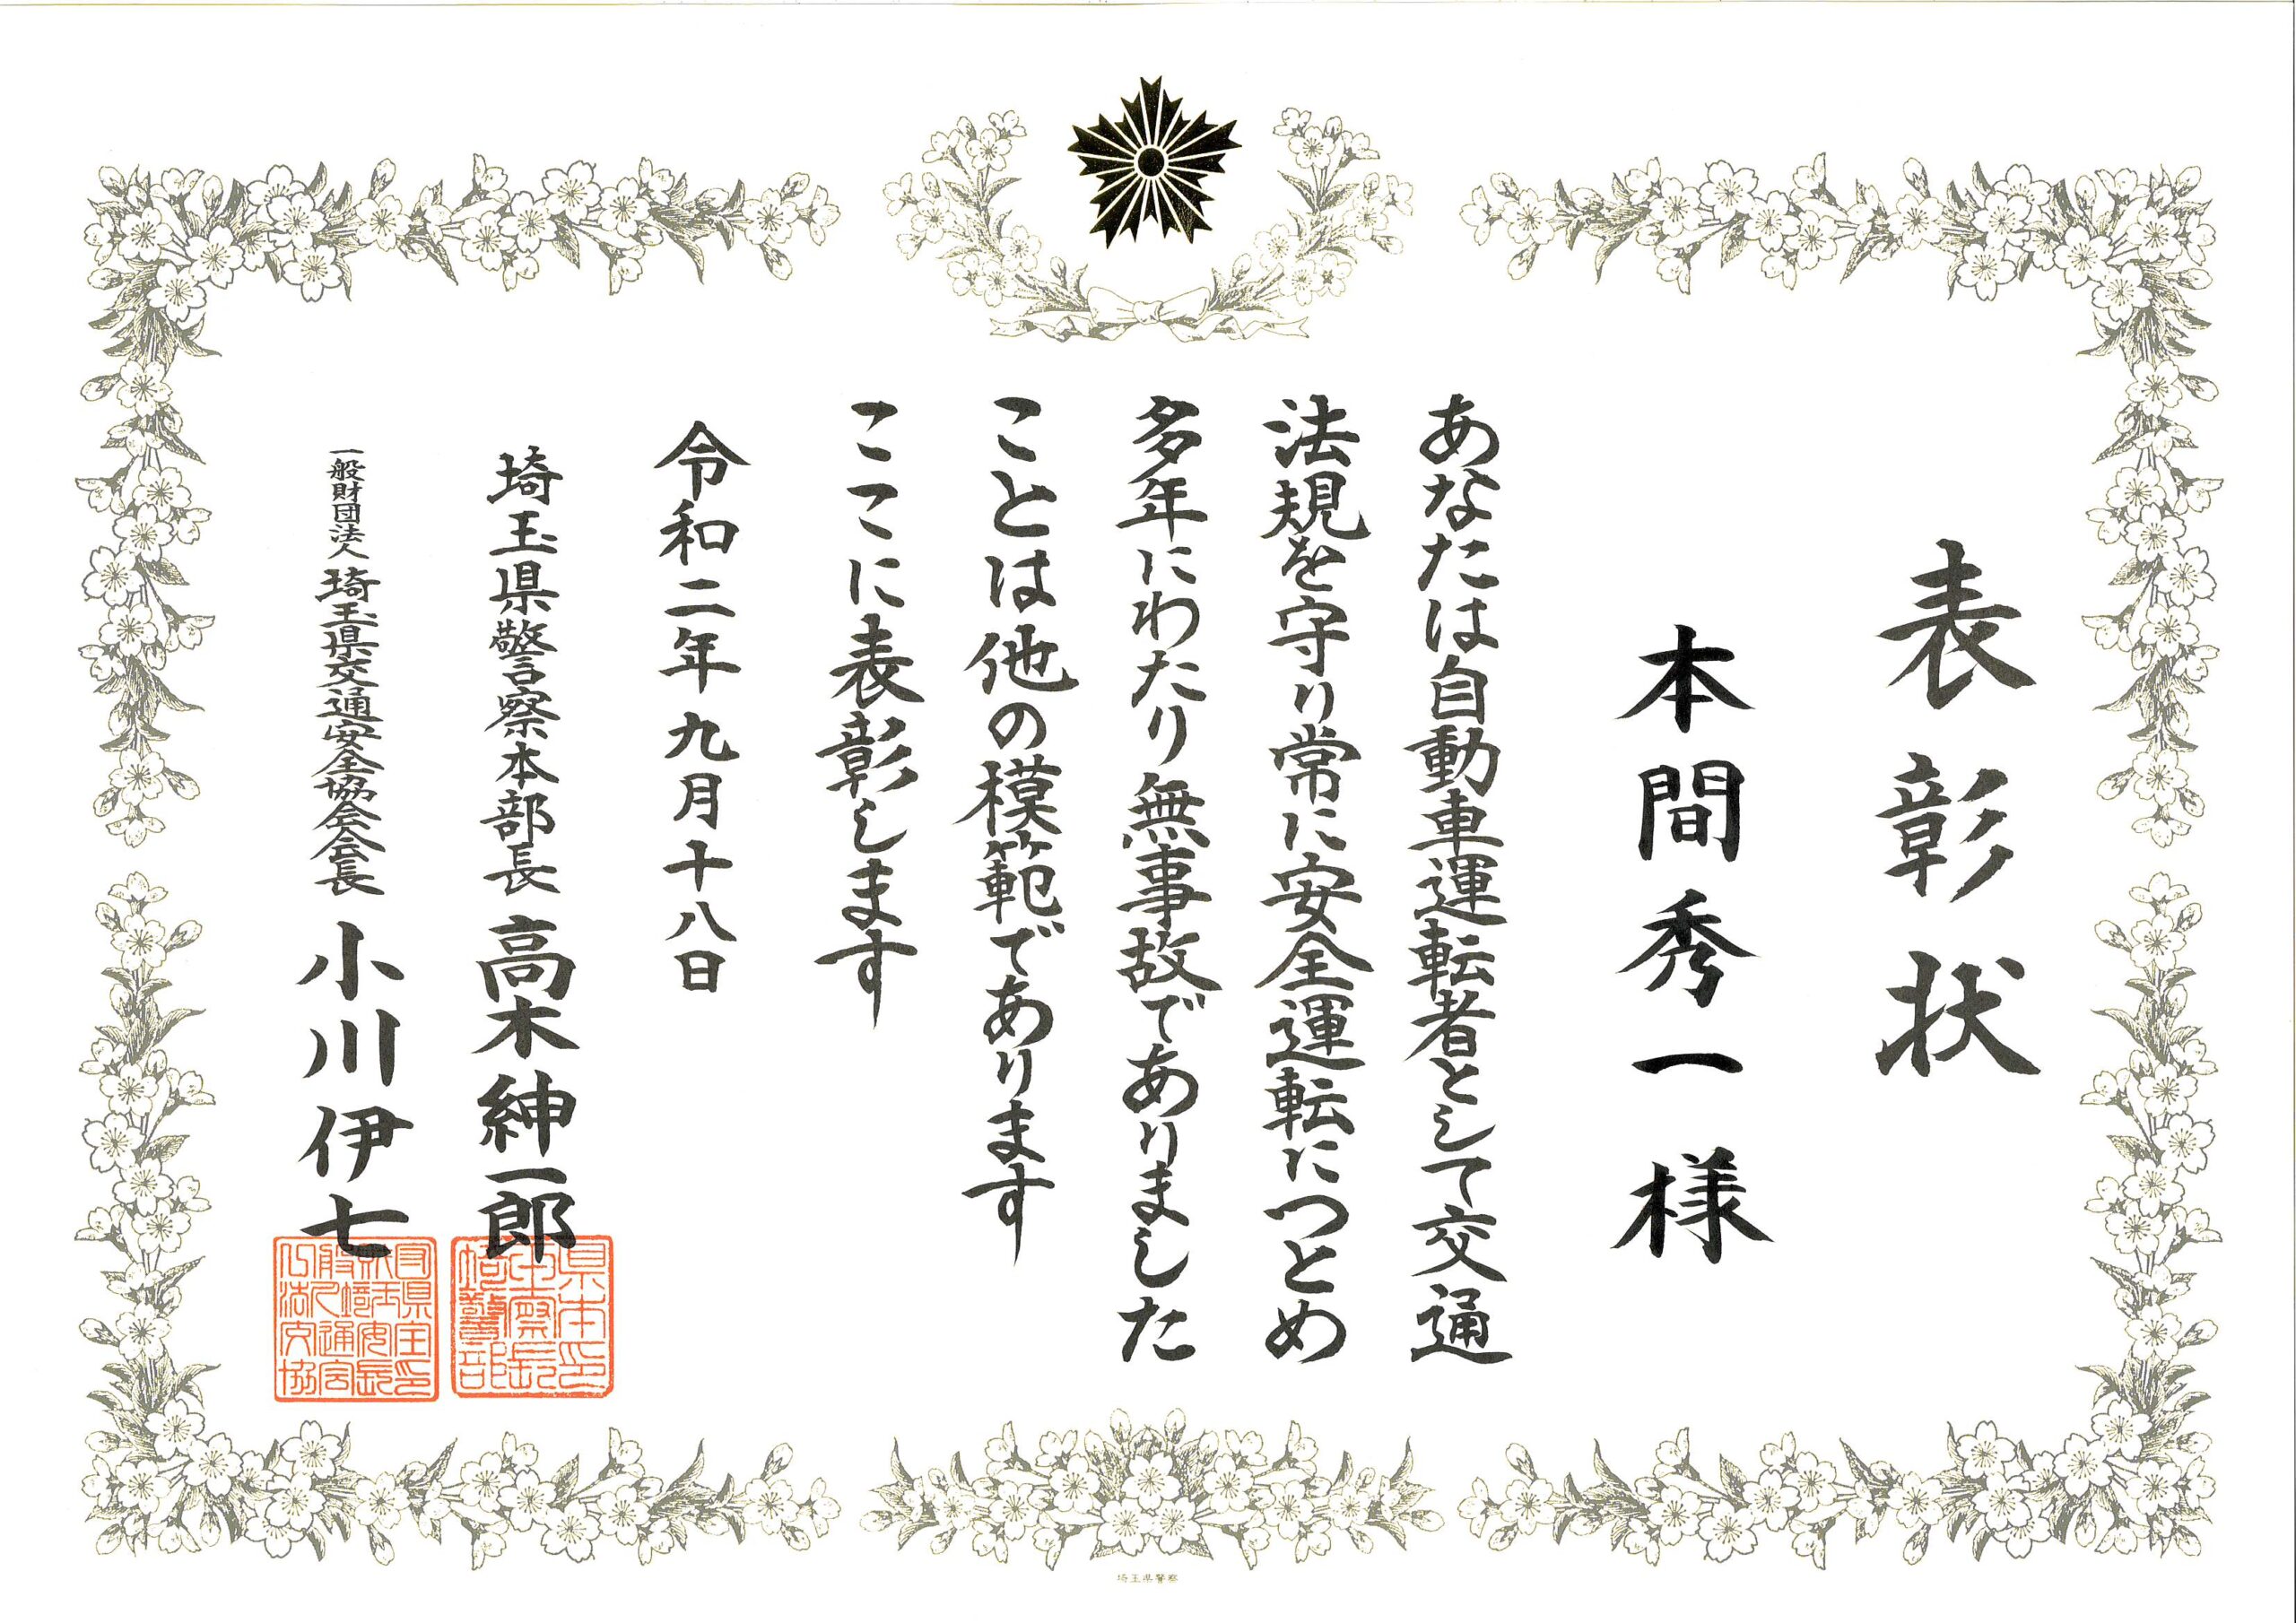 表彰状
本間秀一様
あなたは自動車運転者として交通
法規を守り常に安全運転につとめ
多年にわたり無事故でありました
ことは他の模範であります
ここに表彰します
令和二年九月十八日
埼玉県警察本部長 高木紳一郎
一般財団法人 埼玉県交通安全協会会長 小川伊七
埼玉県警察